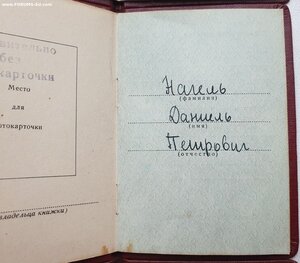 www.FORUMS-SU.com
вительно
без
окарточки
Место
для
отокарточки
владельца книжки)
Нагель
(фамилия)
Даниель
(имя)
Петрович
(отчество)